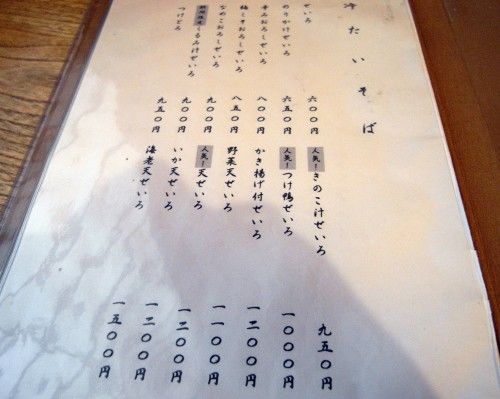 冷たいそば
せいろ 六〇〇円
のりかけせいろ 六五〇円
辛みおろしせいろ 八〇〇円
梅しそおろしせいろ 八五〇円
なめこおろしせいろ 九〇〇円
くるみ汁せいろ 九〇〇円
つけとろ 九五〇円
人気！ きのこ汁せいろ 九五〇円
人気！ つけ鴨せいろ 一〇〇〇円
かき揚げ付せいろ 一二〇〇円
野菜天せいろ 一一〇〇円
人気！ 天せいろ 一二〇〇円
いか天せいろ 一二〇〇円
海老天せいろ 一五〇〇円